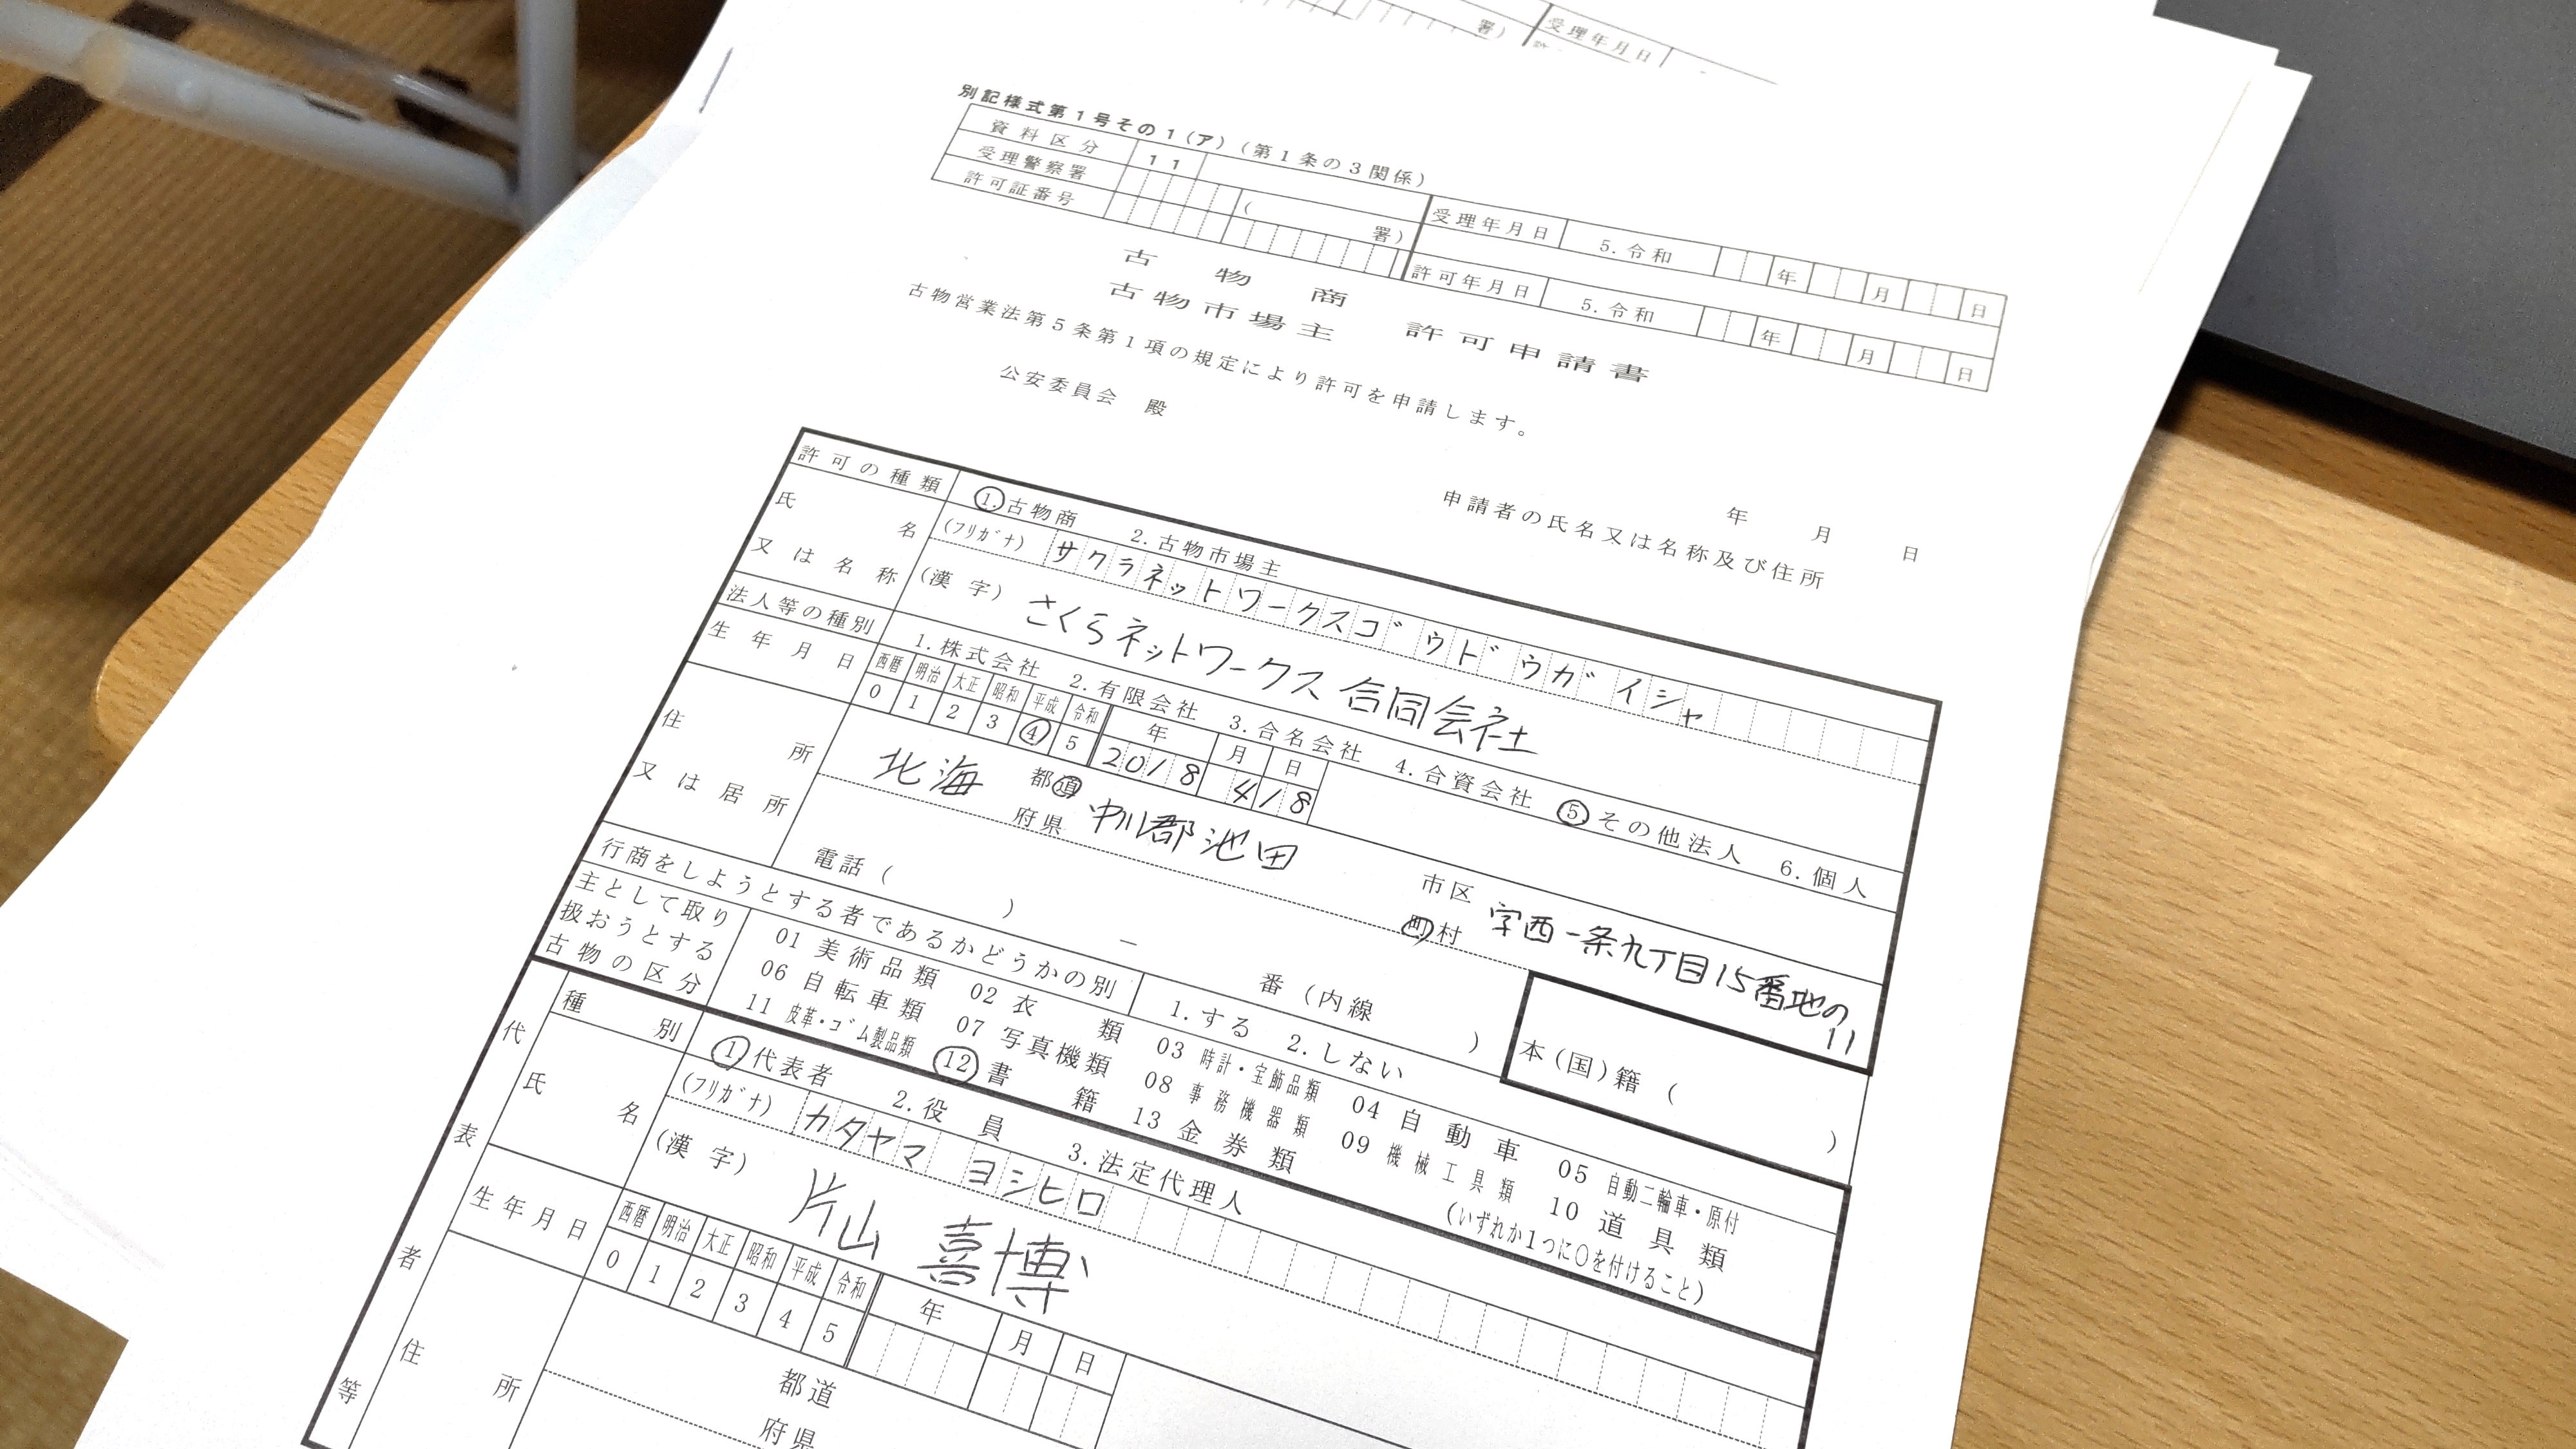 署)
受理年月日
別記様式第1号その1(ア)(第1条の3関係)
資料区分 11
受理警察署 ( 署) 受理年月日 5.令和 年 月 日
許可証番号 許可年月日 5.令和 年 月 日
古物商
古物市場主 許可申請書
古物営業法第5条第1項の規定により許可を申請します。
公安委員会 殿
年 月 日
申請者の氏名又は名称及び住所
許可の種類 1.古物商 2.古物市場主
氏名又は名称
(フリガナ) サクラネットワークスゴウドウガイシャ
(漢字) さくらネットワークス合同会社
法人等の種別 1.株式会社 2.有限会社 3.合名会社 4.合資会社 5 その他法人 6.個人
生年月日 西暦 明治 大正 昭和 平成 令和 年 月 日
0 1 2 3 4 5 2018 4 18
住所又は居所
北海 都道府県 中川郡池田 市区町村 字西一条九丁目15番地の11
電話( ) − 番(内線 )
本(国)籍( )
行商をしようとする者であるかどうかの別 1.する 2.しない
主として取り扱おうとする古物の区分
01 美術品類 02 衣類 03 時計・宝飾品類 04 自動車 05 自動二輪車・原付
06 自転車類 07 写真機類 08 事務機器類 09 機械工具類 10 道具類
11 皮革・ゴム製品類 12 書籍 13 金券類 (いずれか1つに○を付けること)
代表者等
種別 1 代表者 2.役員 3.法定代理人
氏名
(フリガナ) カタヤマ ヨシヒロ
(漢字) 片山 喜博
生年月日 西暦 明治 大正 昭和 平成 令和 年 月 日
0 1 2 3 4 5
住所 都道府県